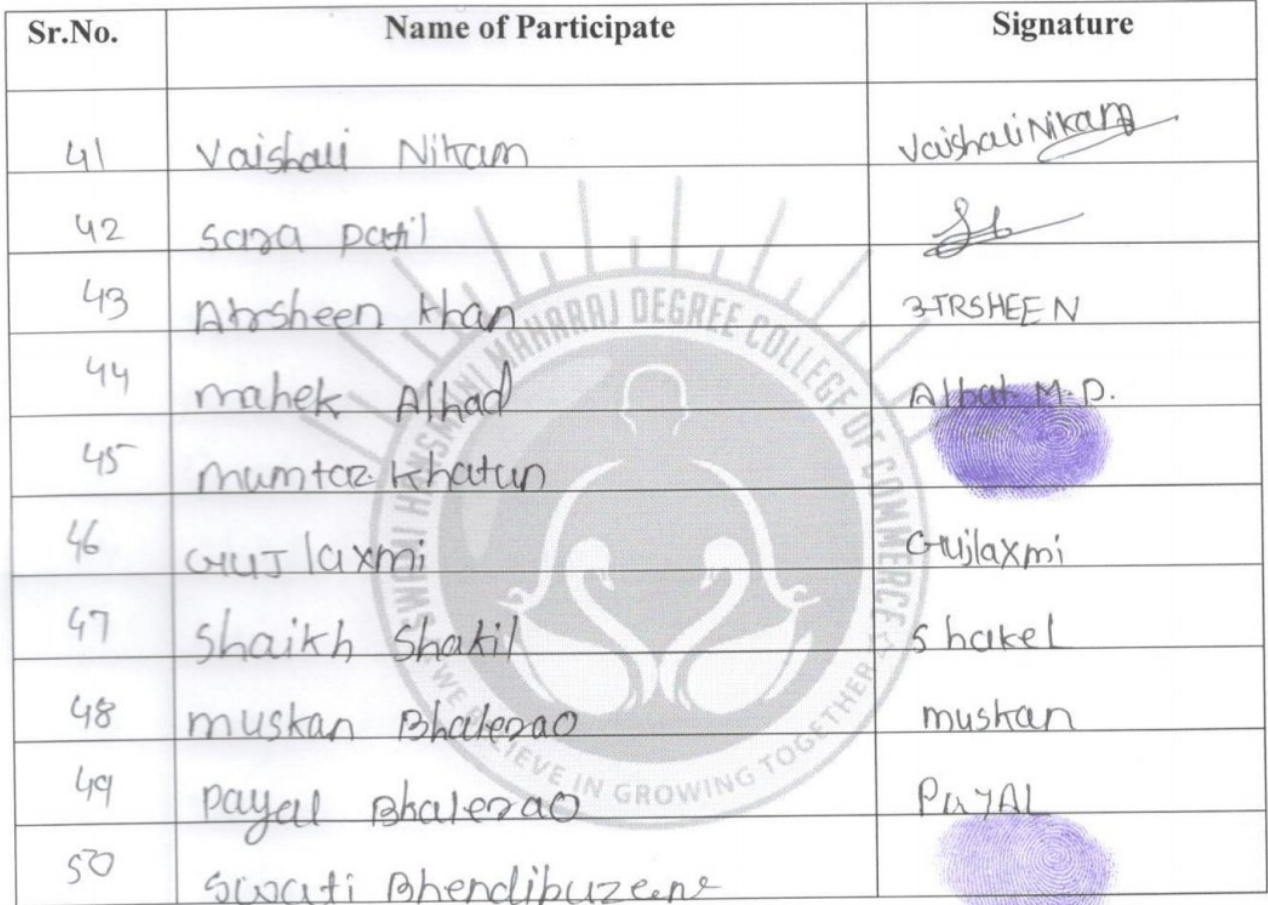 Sr.No. Name of Participate Signature
41 Vaishali Nikam Vaishali Nikam
42 Sara Patil
43 Arsheen Khan अTRSHEEN
44 mahek Alhad Alhat M.D.
45 mumtaz Khatun
46 GUJ laxmi Gujlaxmi
47 Shaikh Shakil Shakel
48 muskan Bhalerao muskan
49 Payal Bhalerao PAYAL
50 Swati
SWAMI HANSMUNI MAHARAJ DEGREE COLLEGE OF COMMERCE
WE BELIEVE IN GROWING TOGETHER